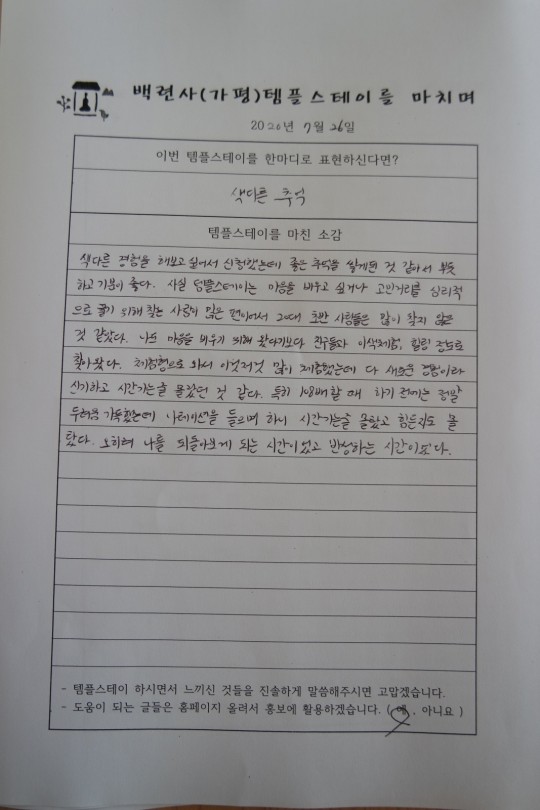 백련사(가평)템플스테이를 마치며
2020년 7월 26일
이번 템플스테이를 한마디로 표현하신다면?
색다른 추억
템플스테이를 마친 소감
색다른 경험을 해보고 싶어서 신청했는데 좋은 추억을 쌓게된 것 같아서 뿌듯
하고 기분이 좋다. 사실 템플스테이는 마음을 비우고 싶거나 고민거리를 심리적
으로 풀기 위해 찾는 사람이 많은 편이어서 20대 초반 사람들은 많이 찾지 않은
것 같았다. 나는 마음을 비우기 위해 왔다기보다 친구들과 이색체험, 힐링 정도로
찾아왔다. 체험형으로 와서 이것저것 많이 체험했는데 다 새로운 경험이라
신기하고 시간가는줄 몰랐던 것 같다. 특히 108배할 때 하기 전에는 정말
두려움 가득했는데 나레이션을 들으며 하니 시간가는줄 몰랐고 힘든지도 몰
랐다. 오히려 나를 되돌아보게 되는 시간이었고 반성하는 시간이었다.
- 템플스테이 하시면서 느끼신 것들을 진솔하게 말씀해주시면 고맙겠습니다.
- 도움이 되는 글들은 홈페이지 올려서 홍보에 활용하겠습니다. ( 예 , 아니요 )